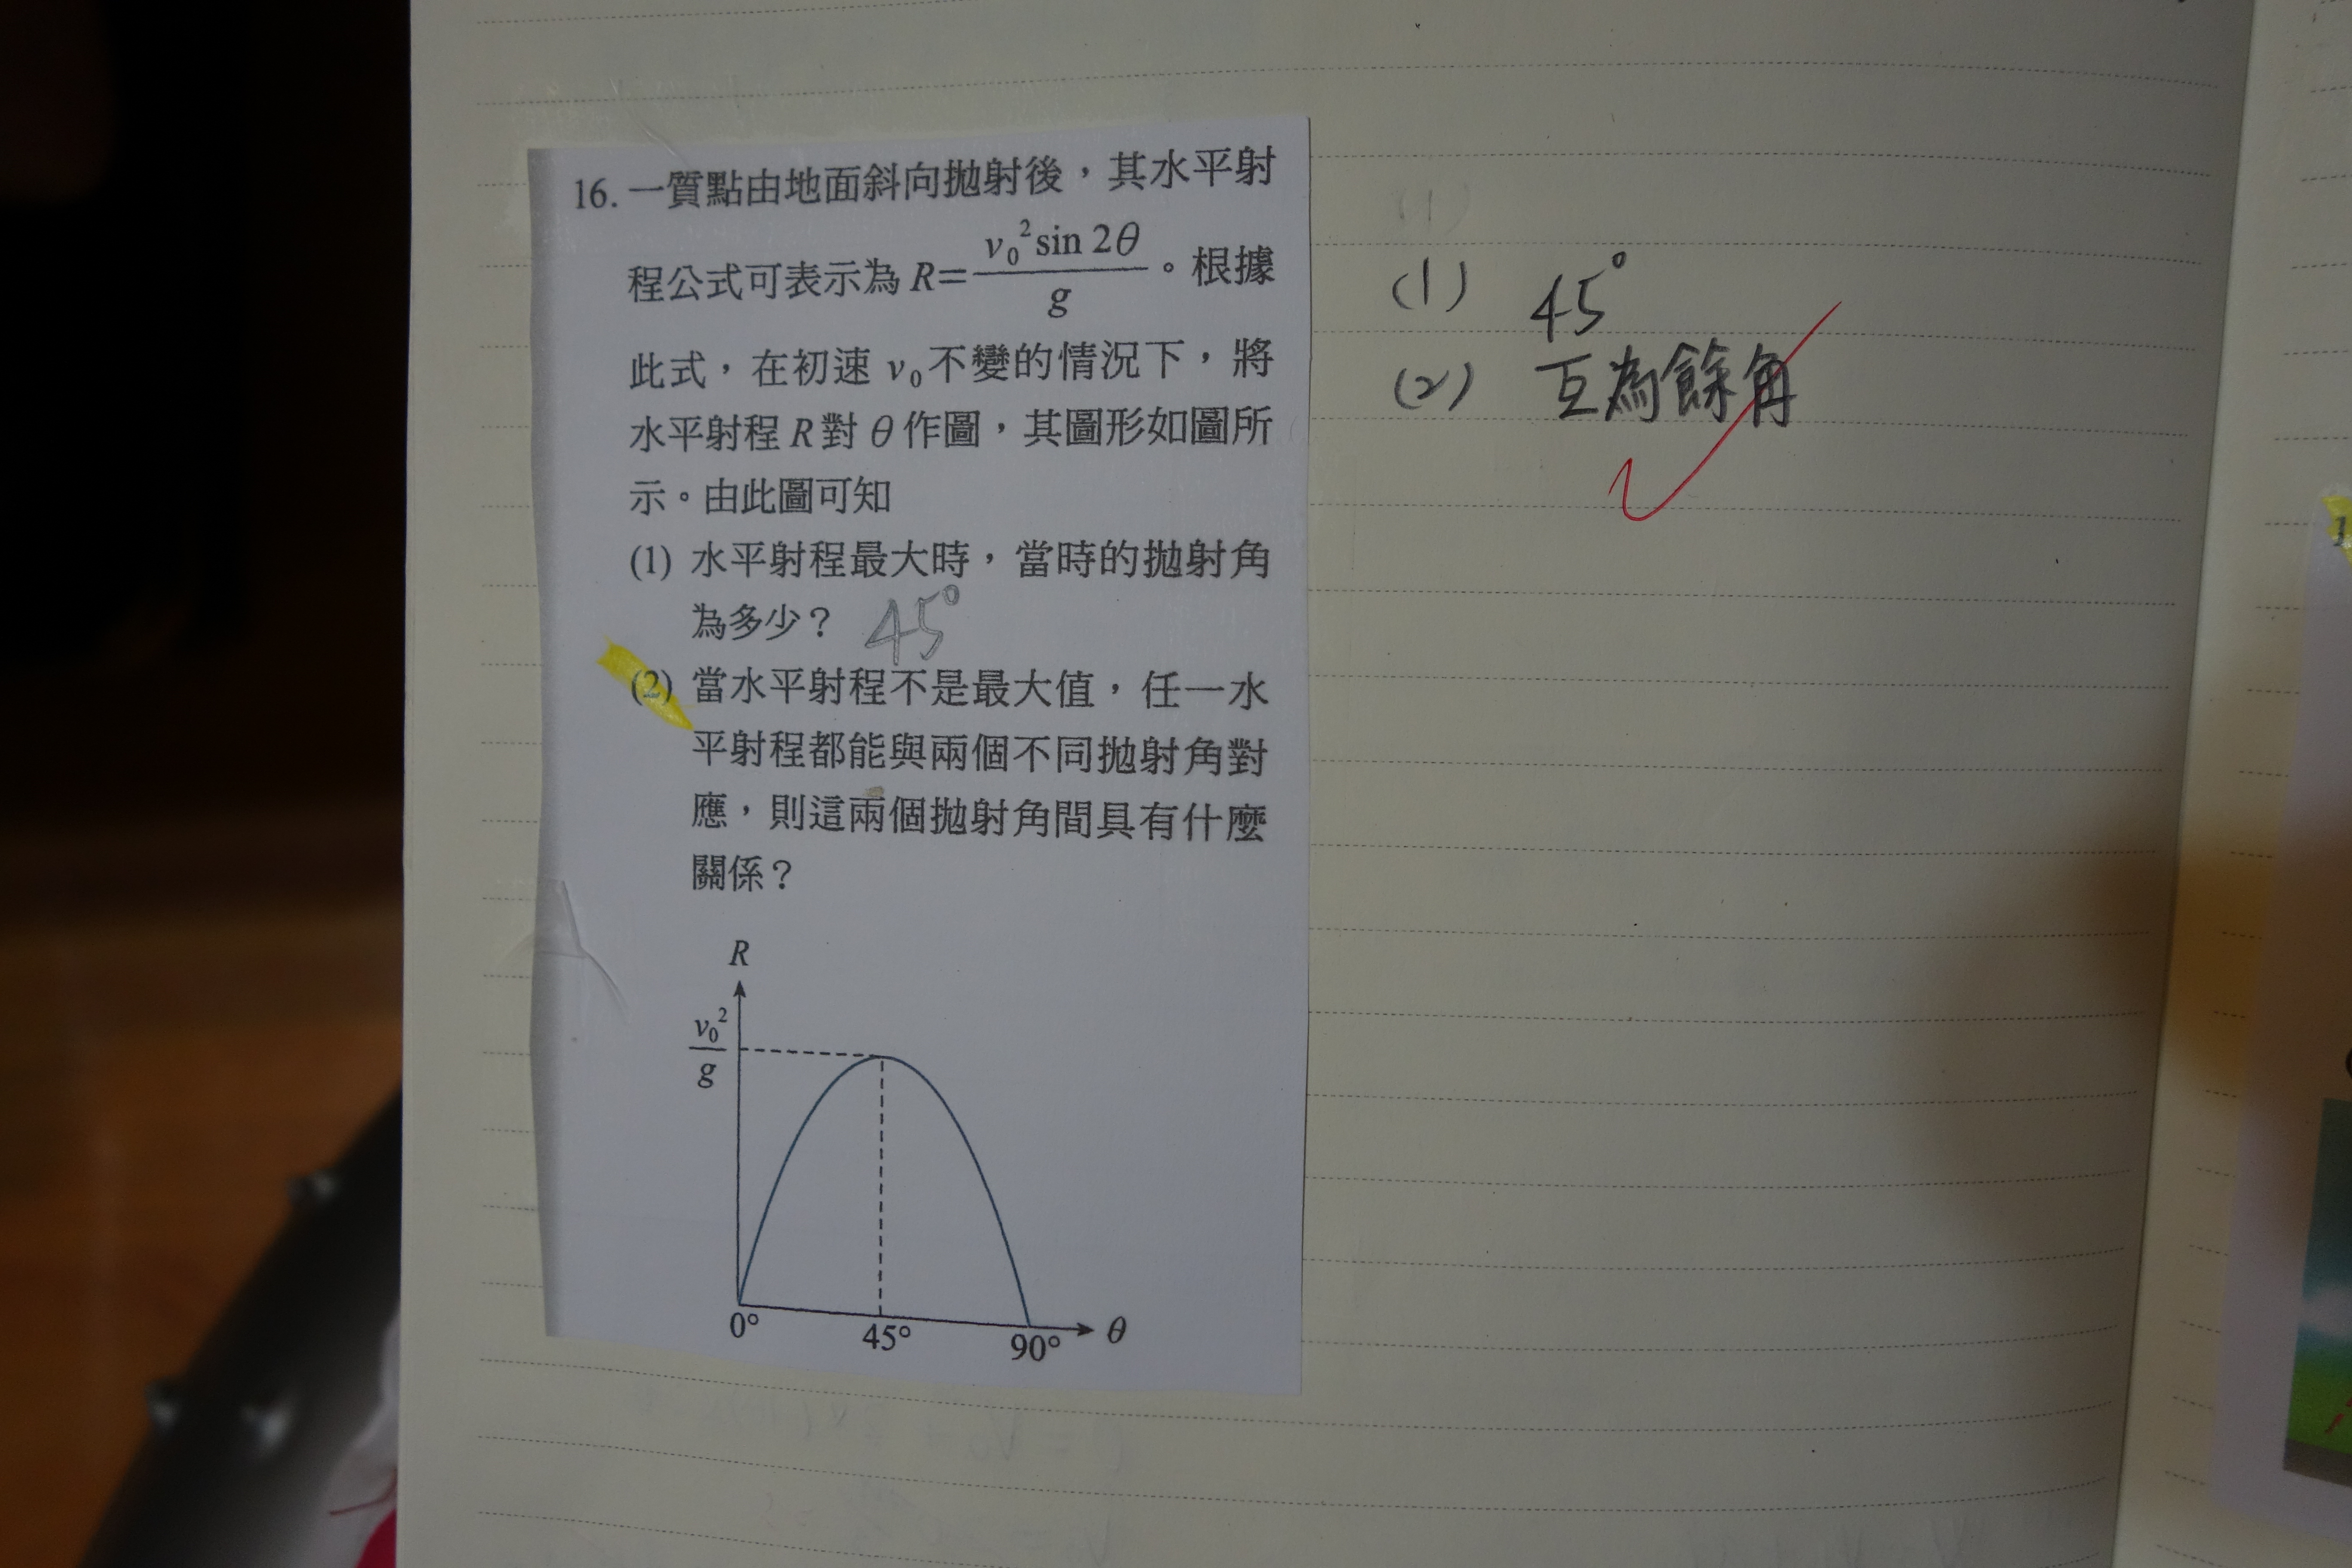 16. 一質點由地面斜向拋射後，其水平射
程公式可表示為 R=v₀² sin 2θ/g。根據
此式，在初速 v₀ 不變的情況下，將
水平射程 R 對 θ 作圖，其圖形如圖所
示。由此圖可知
(1) 水平射程最大時，當時的拋射角
為多少？ 45°
(2) 當水平射程不是最大值，任一水
平射程都能與兩個不同拋射角對
應，則這兩個拋射角間具有什麼
關係？
R
v₀²/g
0° 45° 90° θ
(1) 45°
(2) 互為餘角